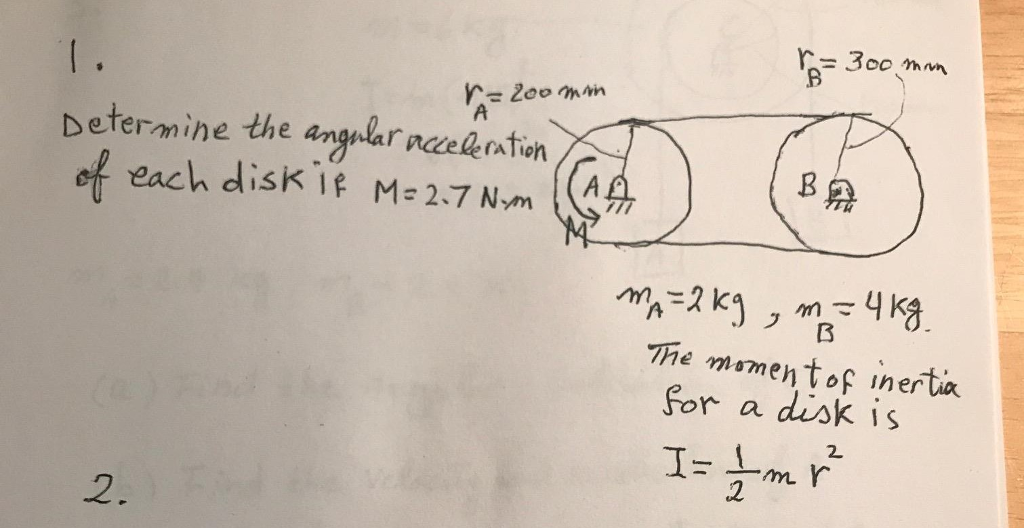 1.
Determine the angular acceleration
of each disk if M=2.7 N.m
r_A = 200 mm
r_B = 300 mm
A
B
M
m_A = 2 kg , m_B = 4 kg.
The moment of inertia
for a disk is
I = 1/2 m r²
2.